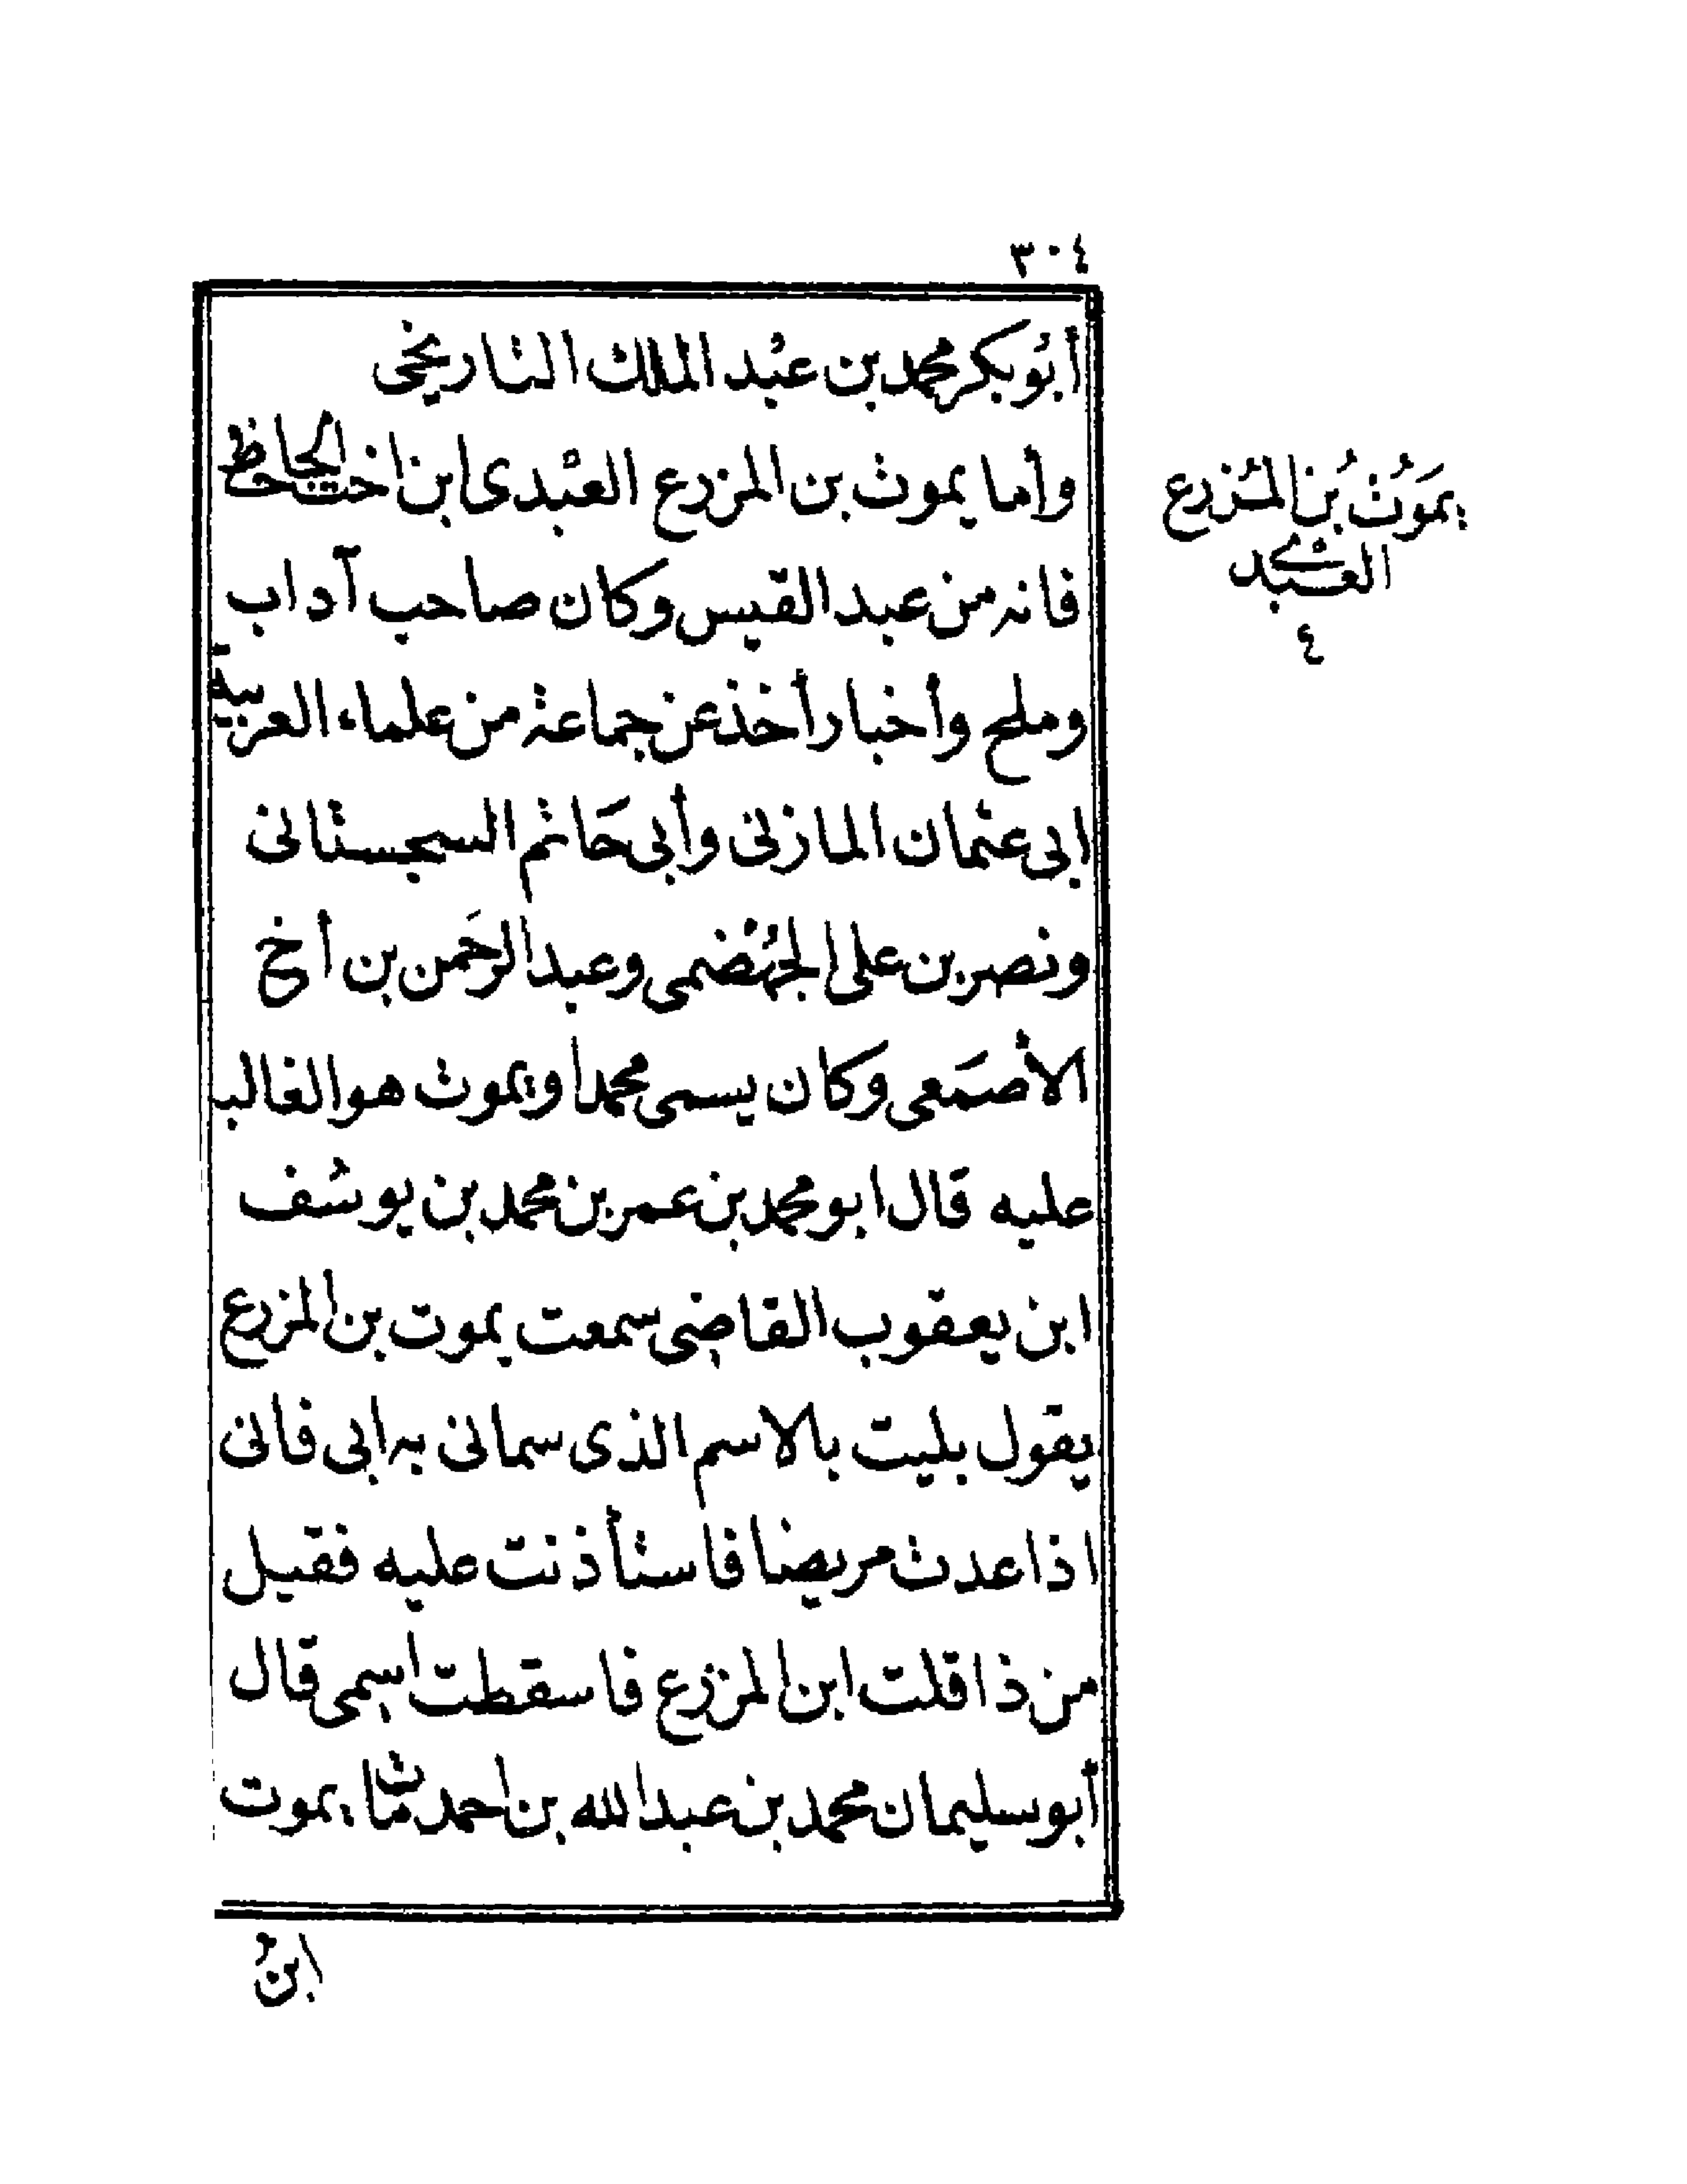 ٣٠٤
أبو بكر محمد بن عبد الملك التاريخى
وأما يموت بن المزرع العبدى ابن اخت الجاحظ
فانه من عبد القيس وكان صاحب آداب
وملح وأخبار أخذ عن جماعة من علماء العربية
ابى عثمان المازنى وأبى حاتم السجستانى
ونصر بن على الجهضمى وعبد الرحمن بن أخ
الأصمعى وكان يسمى محمدا ويموت هو الغالب
عليه قال ابو محمد بن عمر بن محمد بن يوسف
ابن يعقوب القاضى سمعت يموت بن المزرع
يقول بليت بالاسم الذى سمانى به ابى فانى
اذا عدت مريضا فاستأذنت عليه فقيل
من ذا قلت ابن المزرع فاسقطت اسمى قال
أبو سليمان محمد بن عبد الله بن احمد مات يموت
ابن
يموت بن المزرع
العبدى
٤